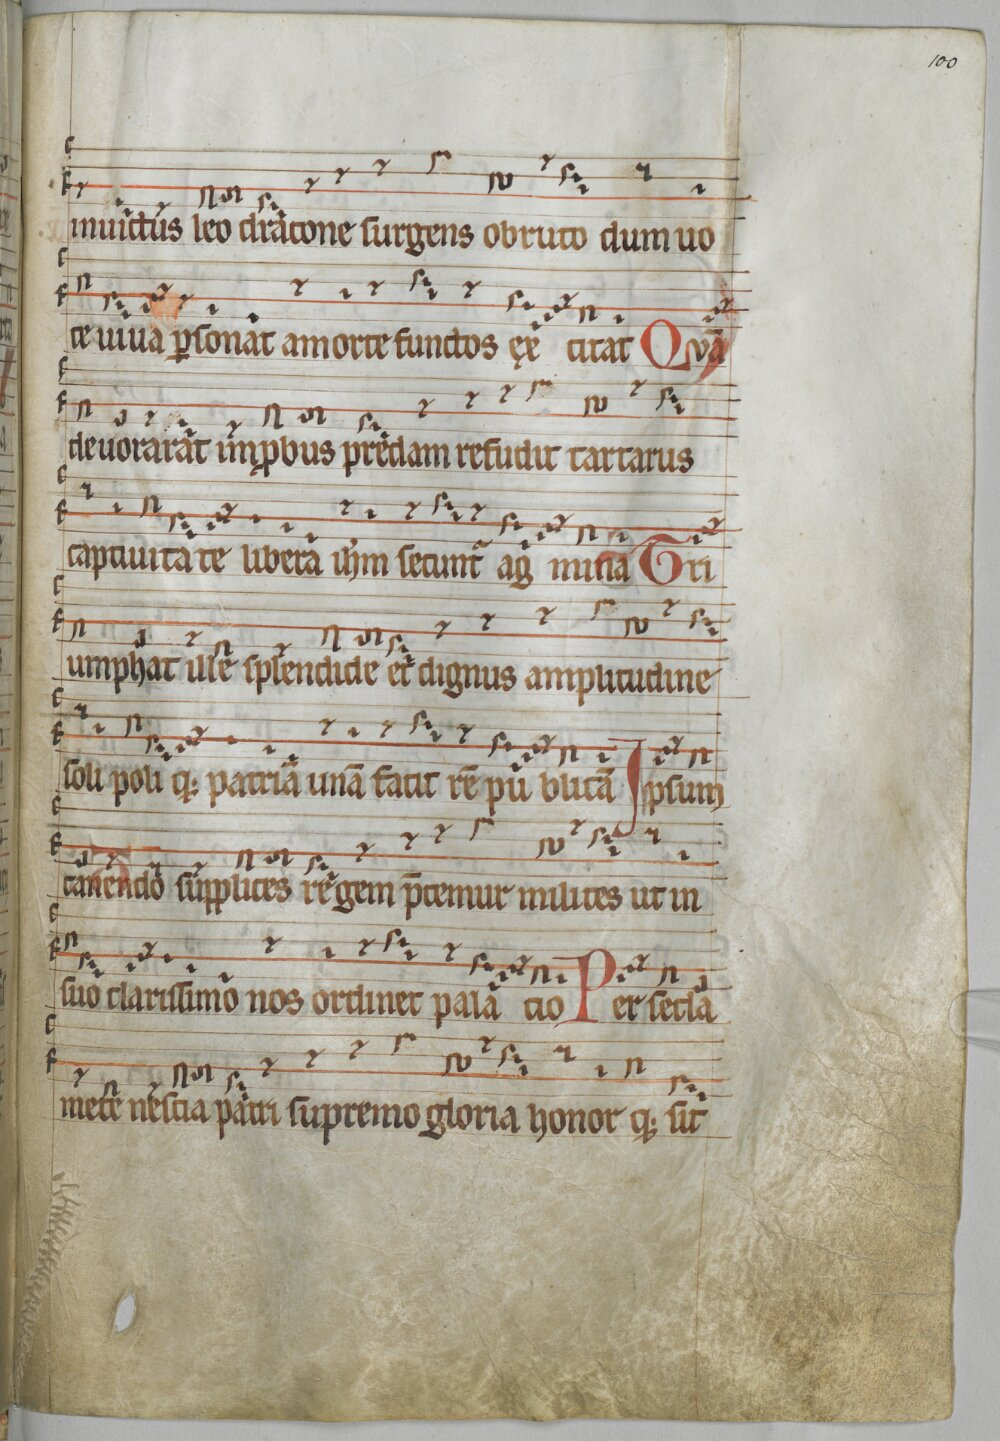 100
inuictus leo dracone surgens obruto dum uo
te uiua ꝑsonat a morte functos ęx citat Quā
deuorarat īꝓbus predam refudit tartarus
captiuita te libera ihm̄ secunt᷑ ag mina Tri
umphat ille splendide et dignus amplitudine
soli poli q: patriā unā facit rē pu blicā Ipsum
canendo supplices regem p̄cemur milites ut in
suo clarissimo nos ordinet pala cio Per secla
mete nescia patri supremo gloria honor q: sit